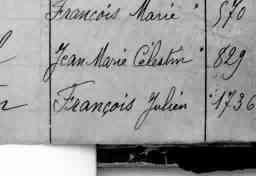 François Marie " 570
Jean Marie Célestin " 829
François Julien " 1736